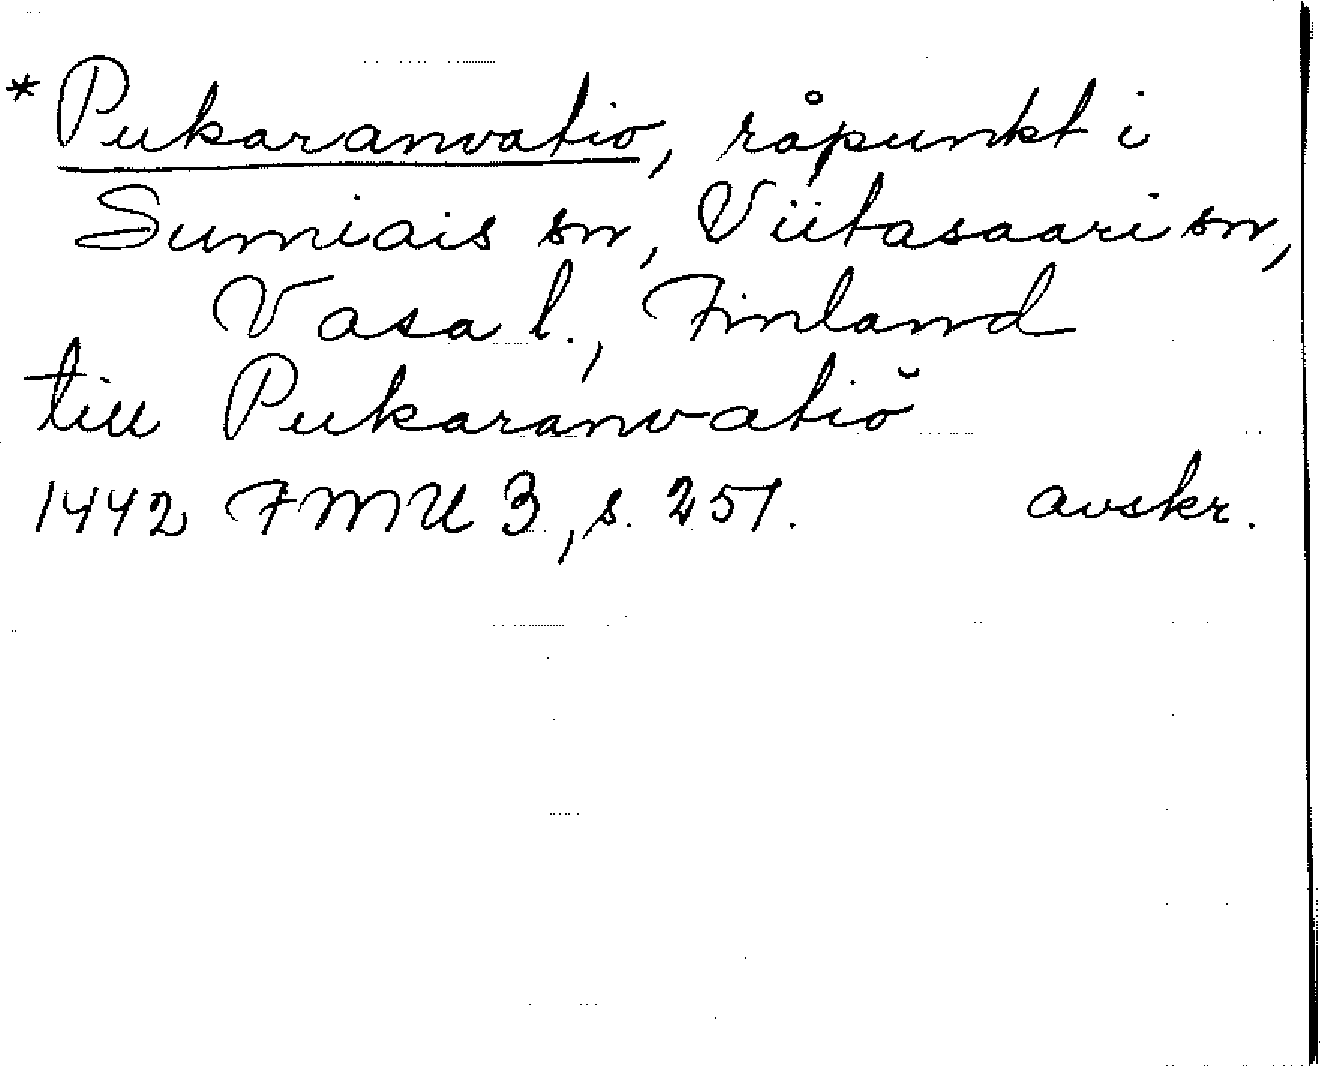 * Pukaranvatio, råpunkt i
Sumiais sn, Viitasaari sn,
Vasa l., Finland
till Pukaranvatiŏ
1442 FMU 3, s. 251. avskr.